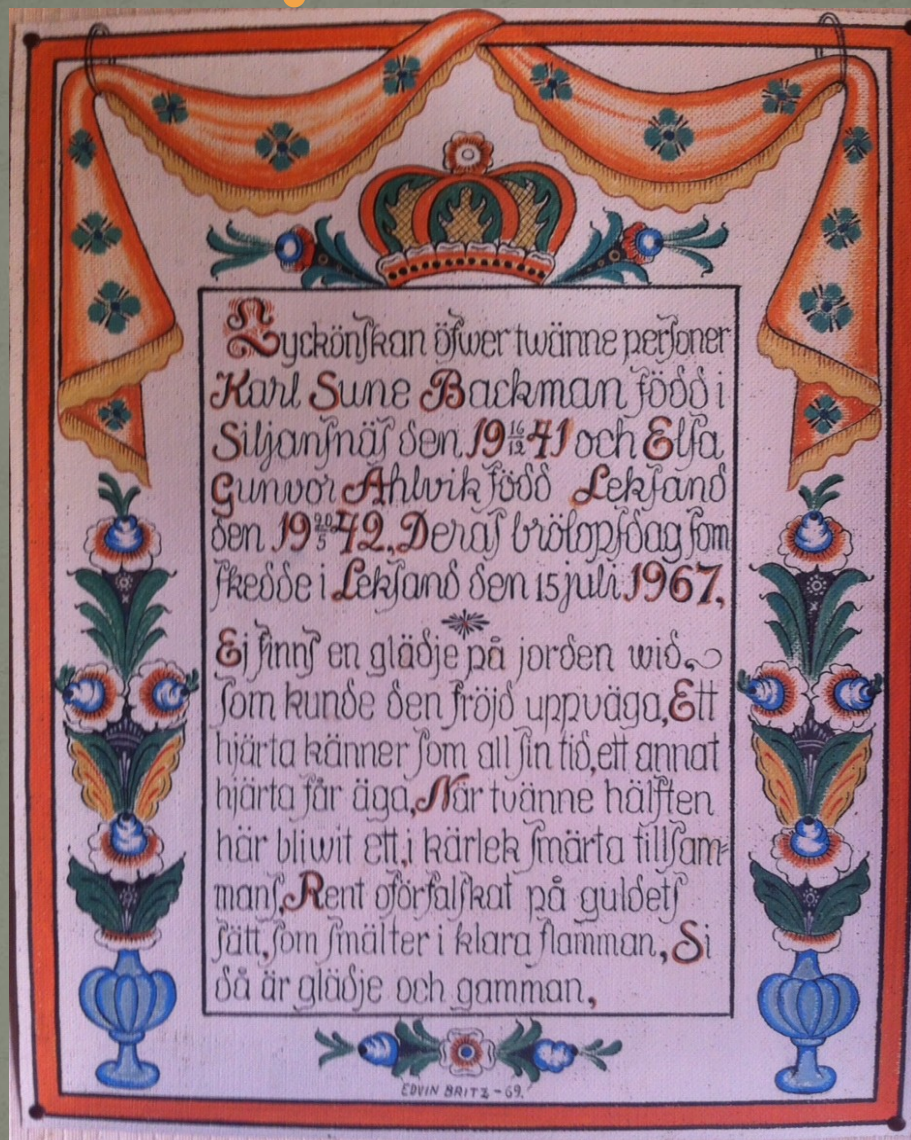 Lyckönskan öfwer twänne personer
Karl Sune Backman född i
Siljansnäs den 19 16/12 41 och Elsa
Gunvor Ahlvik född Leksand
den 19 20/5 42. Deras brölopsdag som
skedde i Leksand den 15 juli 1967.
Ej finns en glädje på jorden wid,
som kunde den fröjd uppväga, Ett
hjärta känner som all sin tid, ett annat
hjärta får äga, När tvänne hälften
här bliwit ett, i kärlek smärta tillsam=
mans, Rent oförfalskat på guldets
sätt, som smälter i klara flamman, Si
då är glädje och gamman,
EDVIN BRITZ - 69.